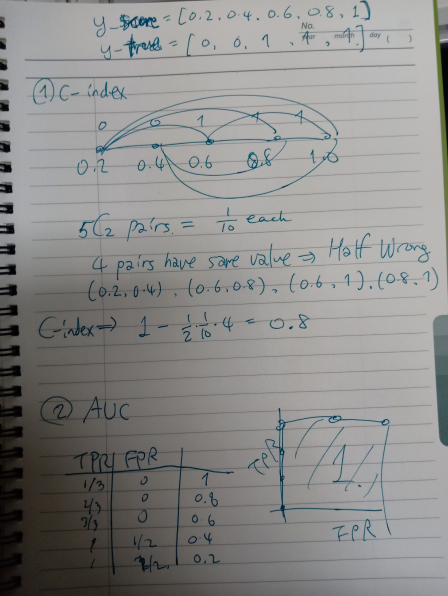 y-score = [0.2, 0.4, 0.6, 0.8, 1]
No.
y-true = [0, 0, 1, 1, 1]
year month day ( )
① C-index
0 0 1 1 1
0.2 0.4 0.6 0.8 1.0
5C2 pairs = 1/10 each
4 pairs have same value ⇒ Half Wrong
(0.2, 0.4), (0.6, 0.8), (0.6, 1), (0.8, 1)
C-index ⇒ 1 - 1/2 · 1/10 · 4 = 0.8
② AUC
TPR FPR
1/3 0 1
2/3 0 0.8
3/3 0 0.6
1 1/2 0.4
1 2/2 0.2
TPR
1
FPR